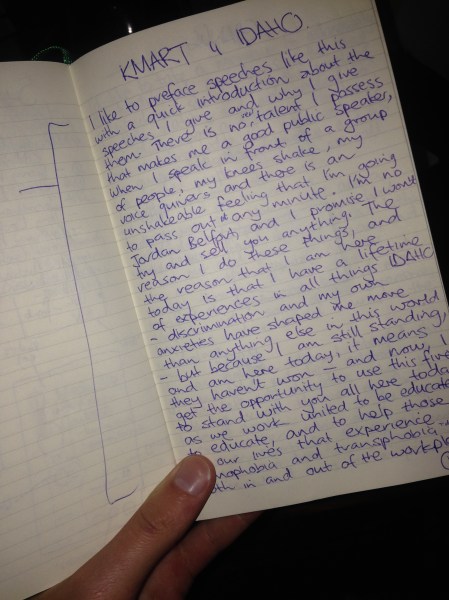 KMART 4 IDAHO.
I like to preface speeches like this
with a quick introduction about the
speeches I give and why I give
them. There is no real talent I possess
that makes me a good public speaker,
when I speak in front of a group
of people, my knees shake, my
voice quivers and there is an
unshakeable feeling that I'm going
to pass out at any minute. I'm no
Jordan Belfort, and I promise I won't
try and sell you anything. The
reason I do these things, and
the reason that I am here
today is that I have a lifetime
of experiences in all things IDAHO
- discrimination and my own
anxieties have shaped me more
than anything else in this world
- but because I am still standing,
and am here today, it means
they haven't won - and now, I
get the opportunity to use this fire
to stand with you all here today
as we work united to be educated
to educate, and to help those
our lives that experience
mophobia and transphobia
oth in and out of the workpla